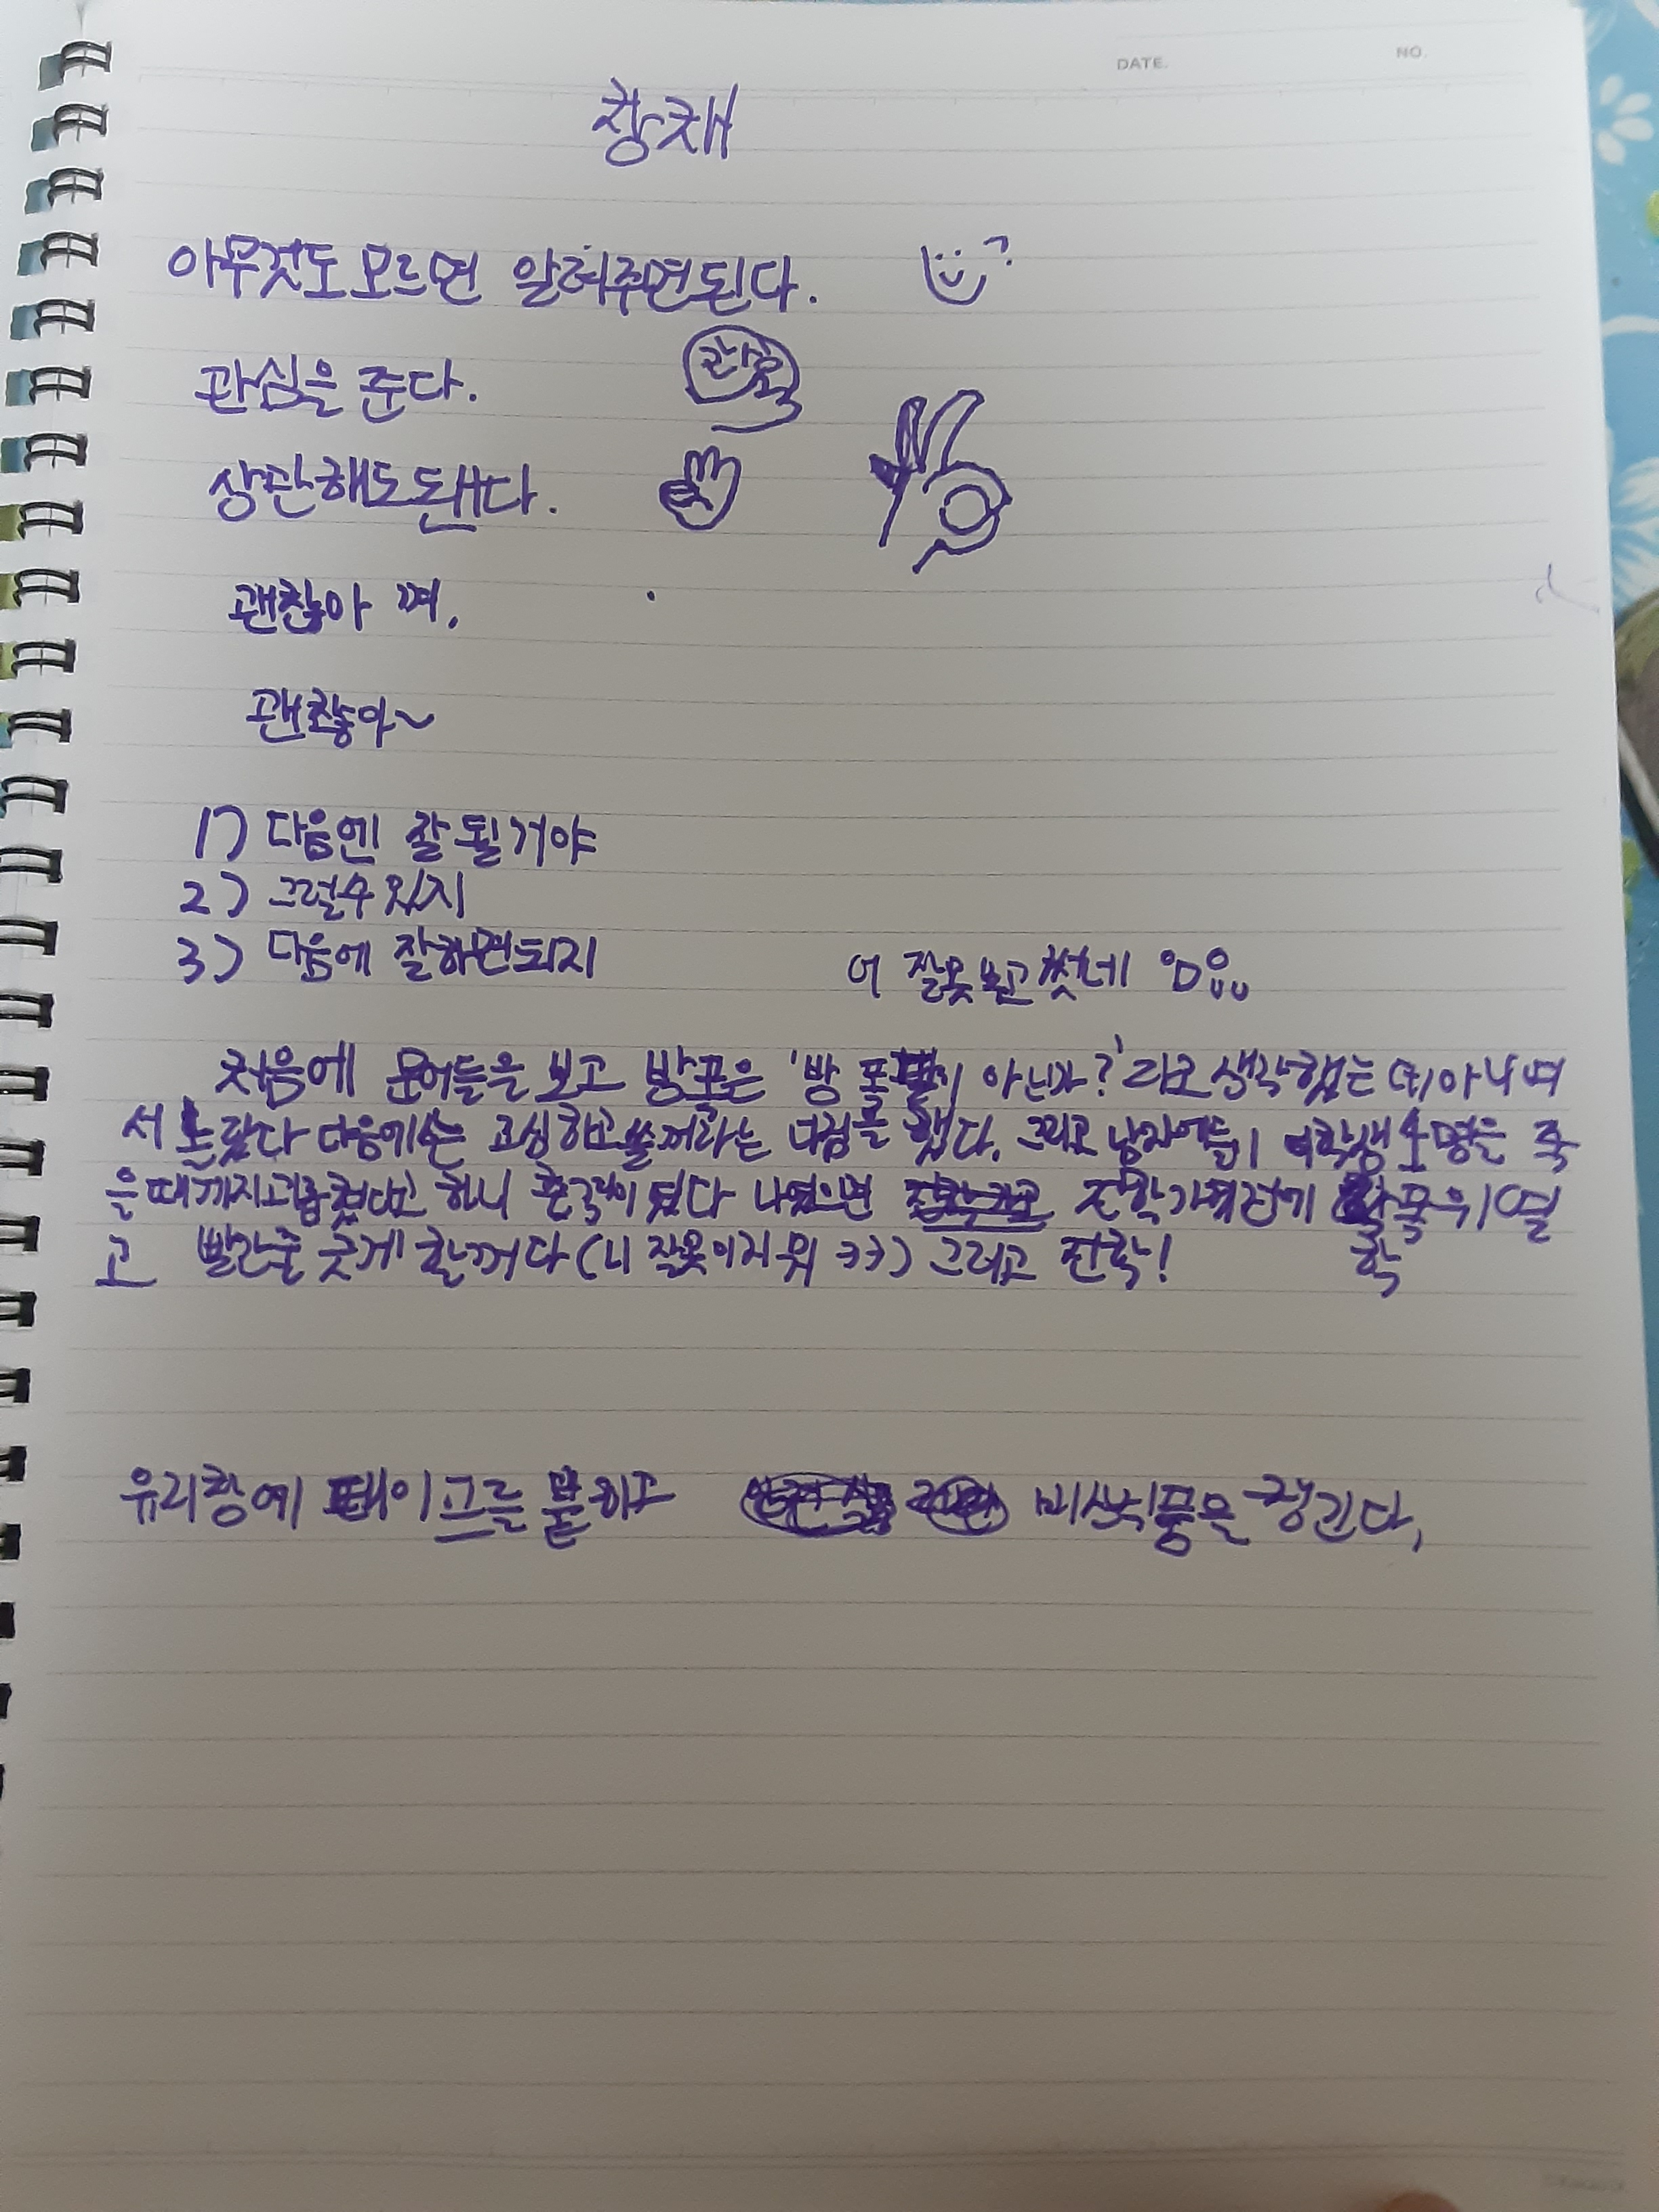 창체
DATE. NO.
아무것도모르면 알려주면된다.
관심을 준다.
상관해도됀다.
괜찮아 며.
괜찮아~
1) 다음엔 잘될거야
2) 그럴수 있지
3) 다음에 잘하면되지
어 잘못보고썼네
처음에 문어들을 보고 방포은 '방 폭 이 아닌가?' 라고 생각했는데아니여
서 놀랐다 다음에는 고심하고쓸꺼라는 다짐을 했다. 그리고 남자애들이 여학생 1명을 죽
을때까지괴롭혔다고 하니 충격이 됬다 나였으면 전학가기전에 학폭위 열
고 빨간줄 긋게 할꺼다 (니 잘못이지 뭐 ㅋㅋ) 그리고 전학!
학
유리창에 테이프를 붙히고 비상식품을 챙긴다,